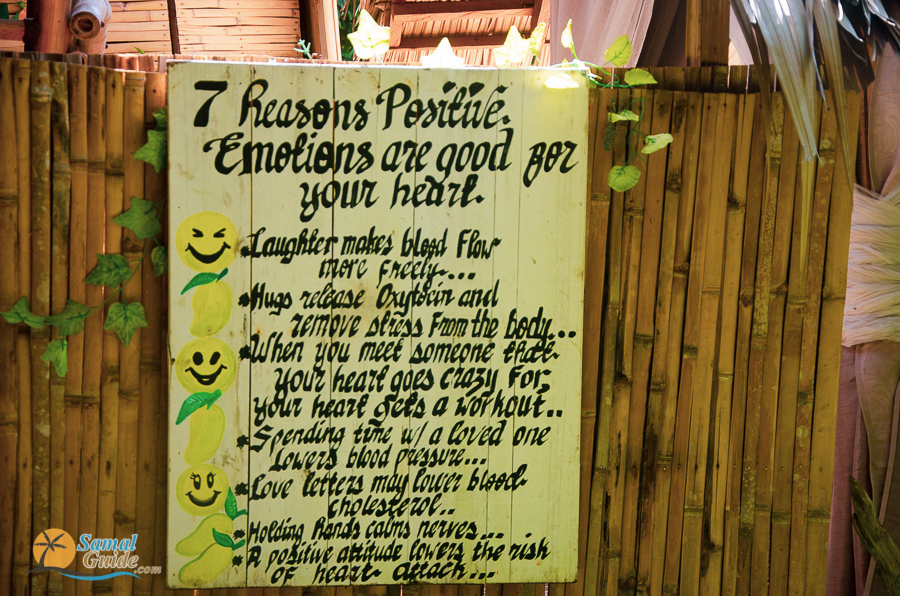 7 Reasons Positive
Emotions are good for
your heart.
*Laughter makes blood Flow
more Freely....
*Hugs release Oxytocin and
remove stress From the body...
*When you meet someone that
your heart goes crazy for,
your heart gets a workout..
*Spending time w/ a loved one
Lowers blood pressure...
*Love letters may lower blood
cholesterol..
*Holding Hands calms nerves...
*A positive attitude lowers the risk
of heart attack...
Samal
Guide.com